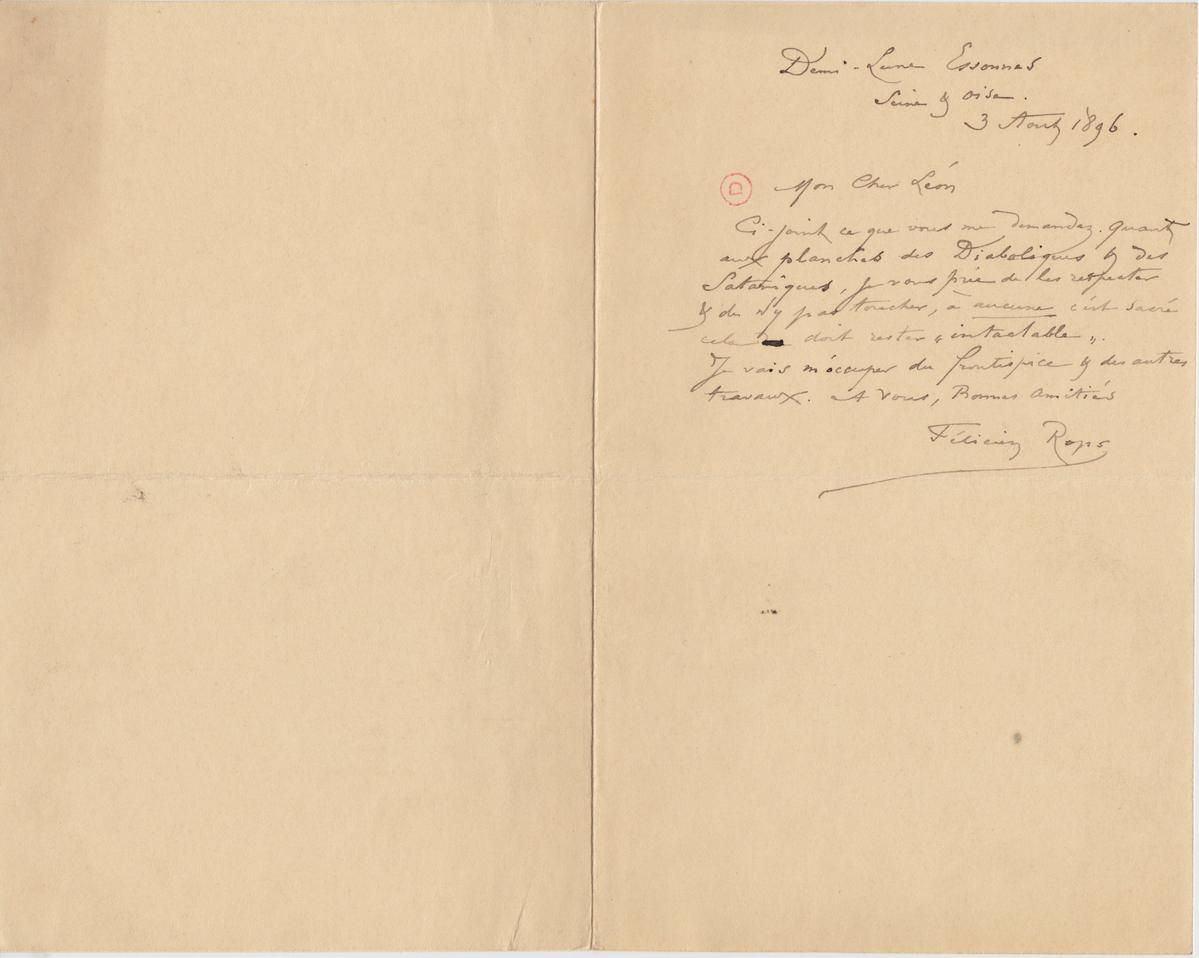 Demi-Lune Essonnes
Seine & Oise.
3 Aout 1896.
D
Mon Cher Léon
Ci-joint ce que vous me demandez. Quant
aux planches des Diaboliques & des
Sataniques, je vous prie de les respecter
& de n'y pas toucher, à aucune c'est sacré
cela doit rester „intactable".
Je vais m'occuper du frontispice & des autres
travaux. A Vous, Bonnes Amitiés
Félicien Rops